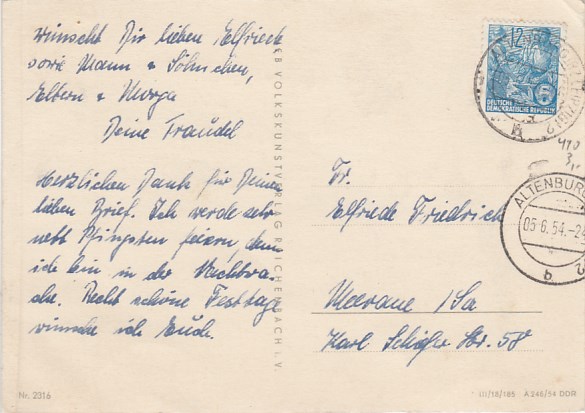 wünscht Dir lieben Elfriede
sowie Mann & Söhnchen,
Eltern & Murga
Deine Traudel
Herzlichen Dank für Deinen
lieben Brief. Ich werde sehr
nett Pfingsten feiern, denn
ich bin in der Nachtwa-
che. Recht schöne Festtage
wünsche ich Euch.
Nr. 2316
VEB VOLKSKUNSTVERLAG REICHENBACH I. V.
12
DEUTSCHE
DEMOKRATISCHE REPUBLIK
ALTENBURG
05.6.54.-24
b
Fr.
Elfriede Friedrich
Meerane /Sa
Karl Schiefer Str. 58
III/18/185 A 246/54 DDR